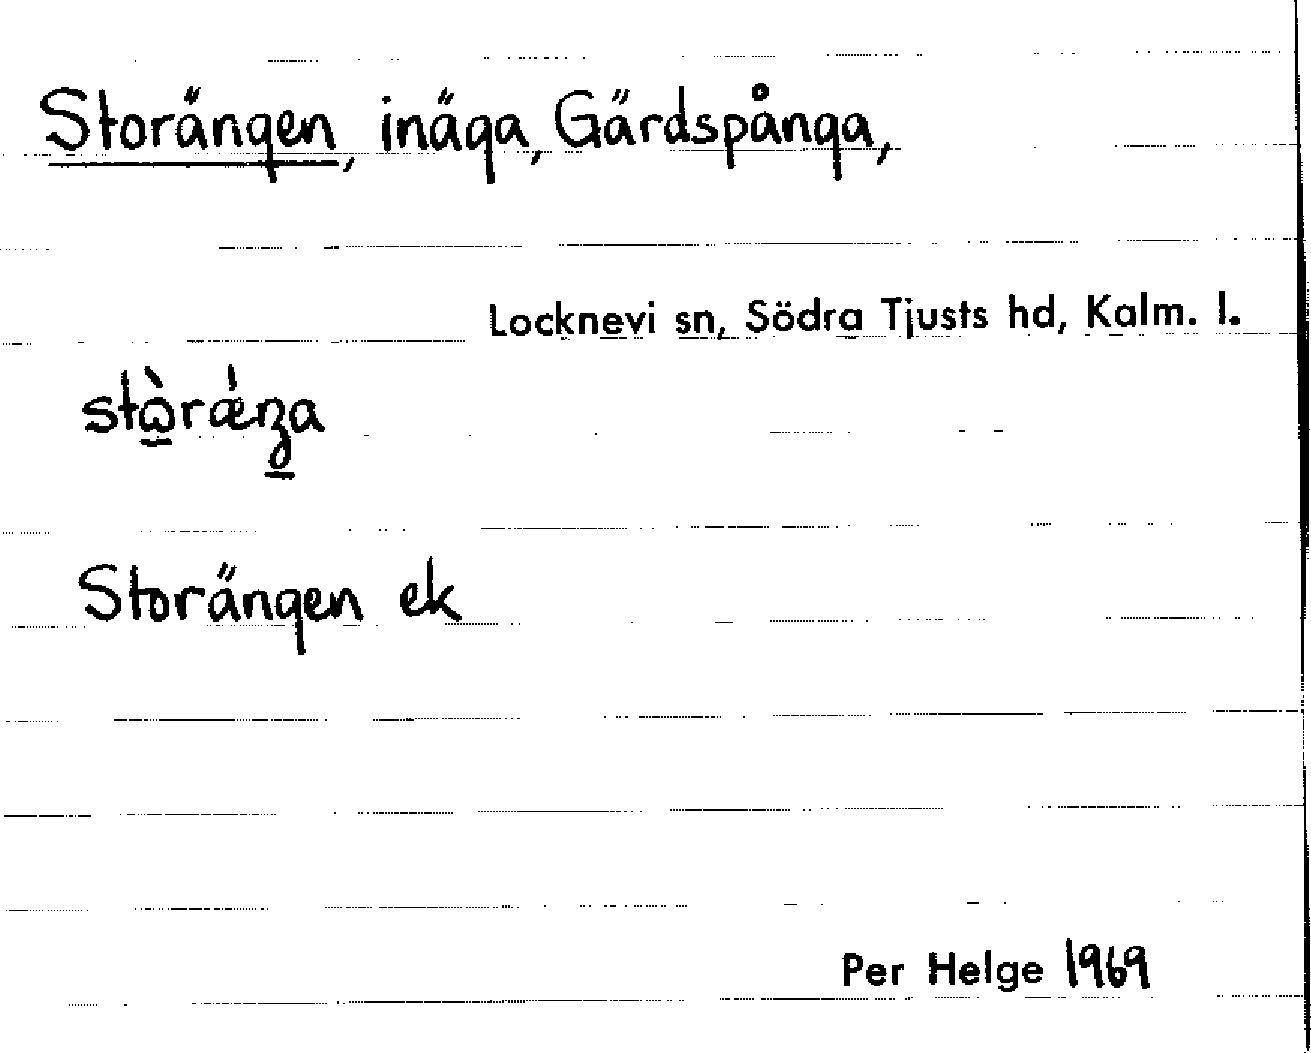 Storängen, inäga, Gärdspånga,
Locknevi sn, Södra Tjusts hd, Kalm. l.
stὼrǽŋa
Storängen ek
Per Helge 1969